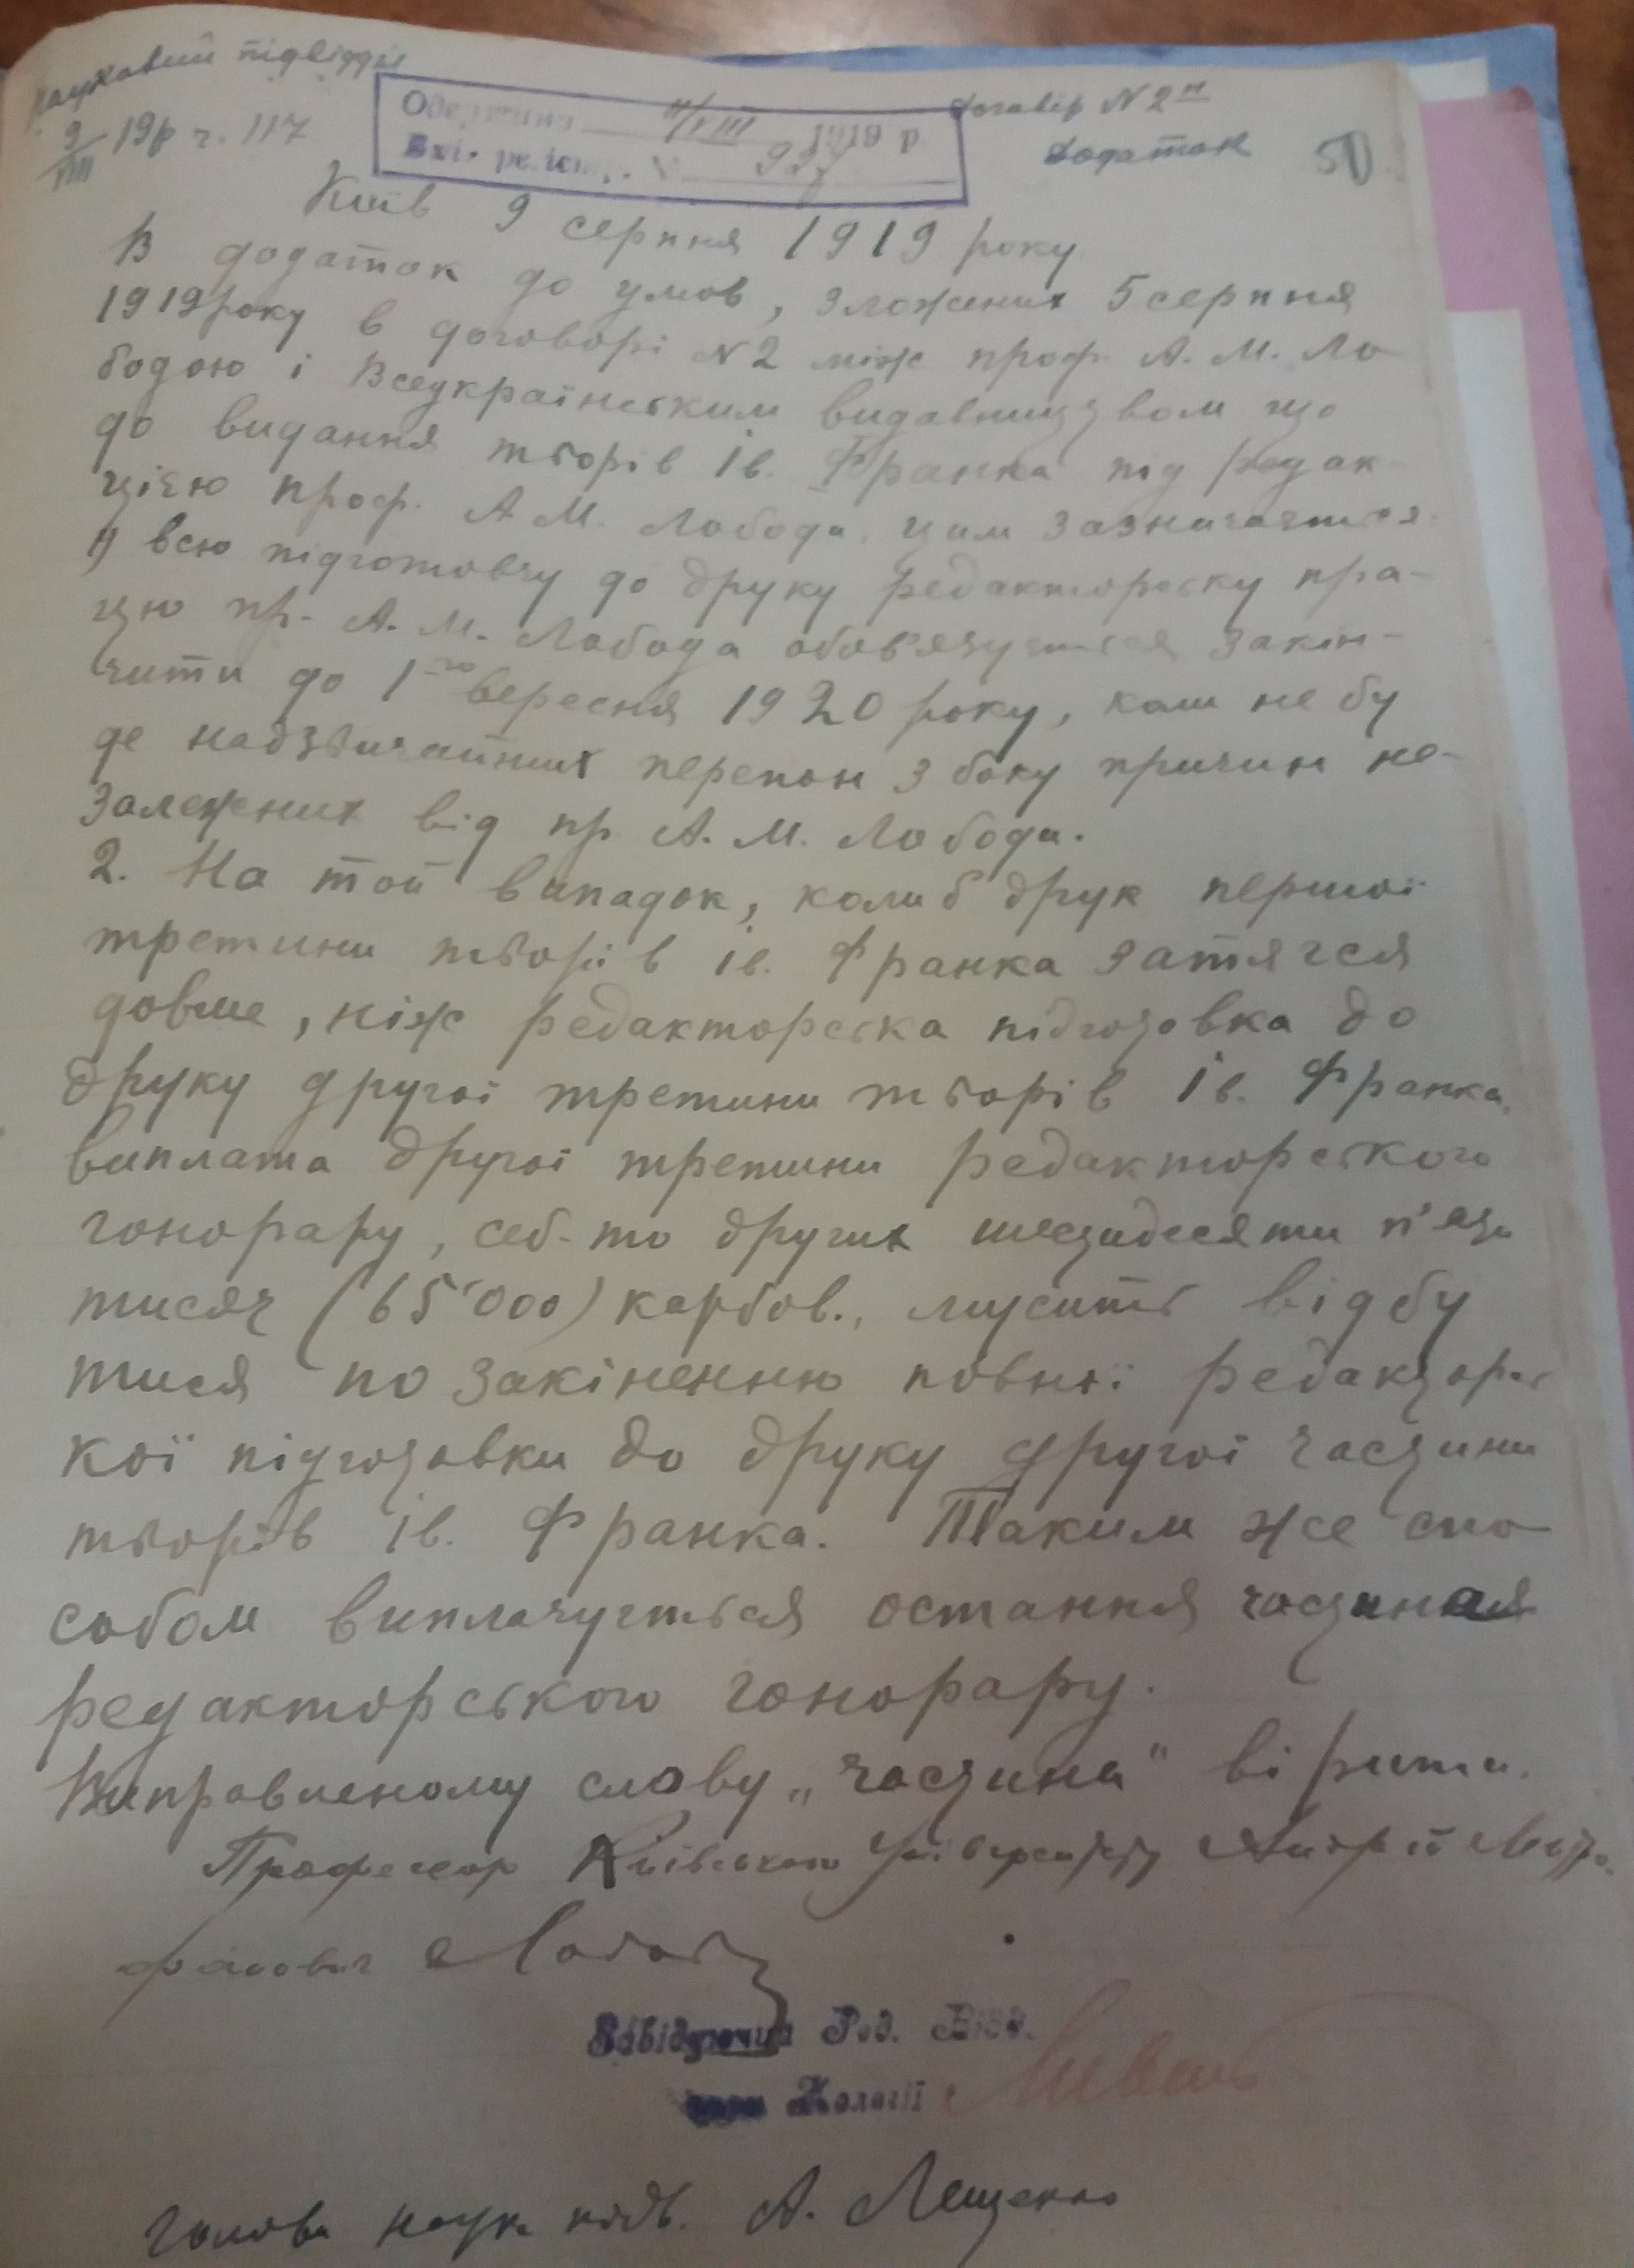 Науковий підвідділ
9/VIII 19р ч. 117
Одержано 11/VIII 1919 р.
Вхі. реєстр. N 927
Договір N 2а
Додаток
50
Київ 9 серпня 1919 року
В додаток до умов, зложених 5 серпня
1919 року в договорі N 2 між проф. А. М. Ло-
бодою і Всеукраїнським видавництвом що
до видання творів Ів. Франка під редак-
цією проф. А. М. Лободи, цим зазначається
1) всю підготовчу до друку редакторську пра-
цю пр. А. М. Лобода обов'язується закін-
чити до 1-го вересня 1920 року, коли не бу
де надзвичайних перепон з боку причин не-
залежених від пр А. М. Лободи.
2. На той випадок, колиб друк першої
третини творів Ів. Франка затягся
довше, ніж редакторська підготовка до
друку другої третини творів Ів. Франка,
виплата другої третини редакторського
гонорару, себ-то других шестидесяти п'яти
тисяч (65'000) карбов., мусить відбу
тися по закіненню повної редакторсь
кої підготовки до друку другої частини
творів Ів. Франка. Таким же спо-
собом виплачується остання частина
редакторського гонорару.
Виправленому слову „частина" вірити.
Професор Київського Університету Андрій Митро-
фанович Лобода
Завідуючий Ред. Від.
Колегії
Голова наук. підв. А. Лещенко